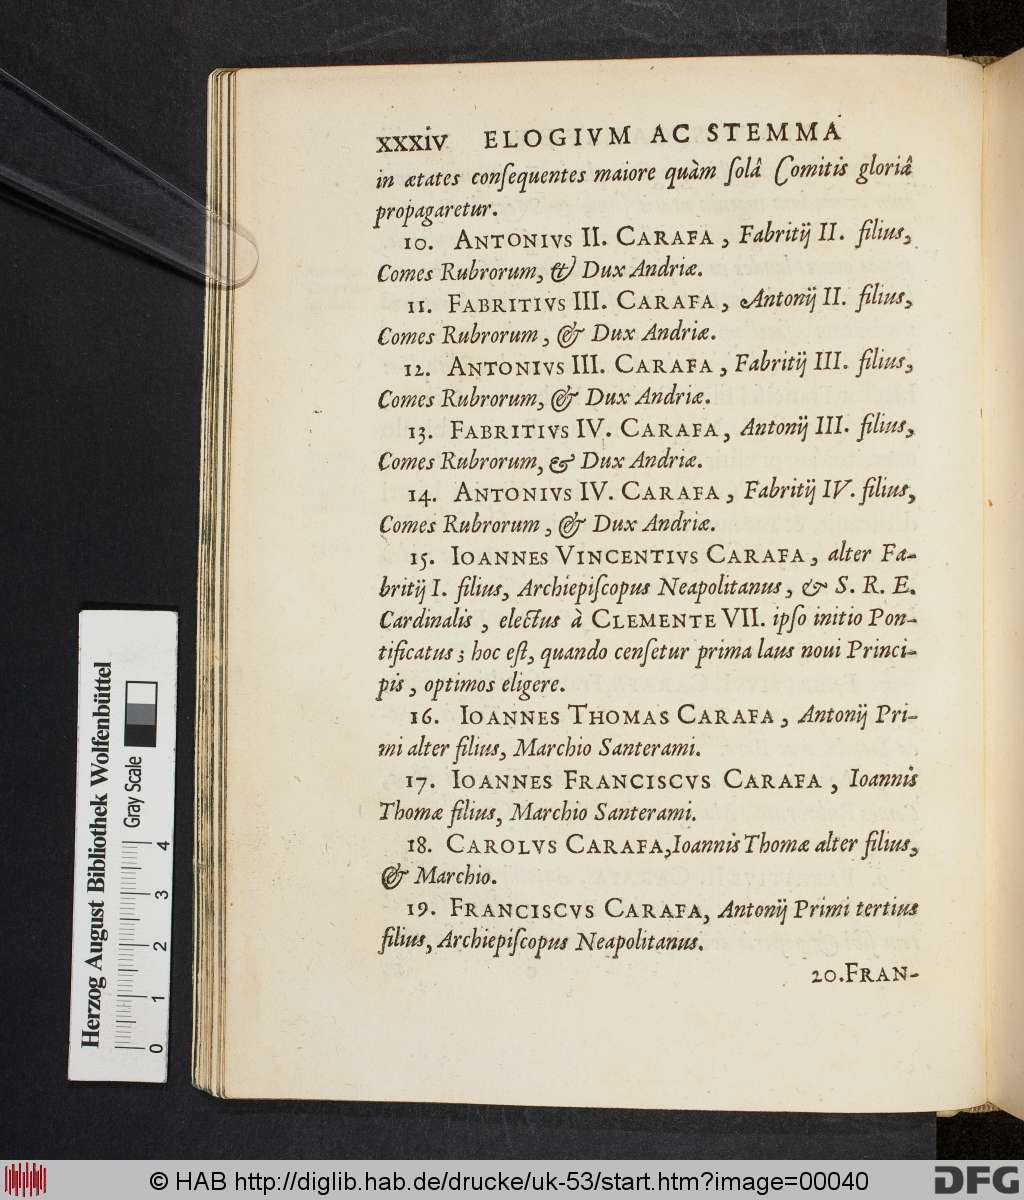 xxxiv ELOGIVM AC STEMMA
in ætates conſequentes maiore quàm ſolâ Comitis gloriâ
propagaretur.
10. ANTONIVS II. CARAFA, Fabritij II. filius,
Comes Rubrorum, & Dux Andriæ.
11. FABRITIVS III. CARAFA, Antonij II. filius,
Comes Rubrorum, & Dux Andriæ.
12. ANTONIVS III. CARAFA, Fabritij III. filius,
Comes Rubrorum, & Dux Andriæ.
13. FABRITIVS IV. CARAFA, Antonij III. filius,
Comes Rubrorum, & Dux Andriæ.
14. ANTONIVS IV. CARAFA, Fabritij IV. filius,
Comes Rubrorum, & Dux Andriæ.
15. IOANNES VINCENTIVS CARAFA, alter Fa-
britij I. filius, Archiepiſcopus Neapolitanus, & S. R. E.
Cardinalis, electus à CLEMENTE VII. ipſo initio Pon-
tificatus; hoc eſt, quando cenſetur prima laus noui Princi-
pis, optimos eligere.
16. IOANNES THOMAS CARAFA, Antonij Pri-
mi alter filius, Marchio Santerami.
17. IOANNES FRANCISCVS CARAFA, Ioannis
Thomæ filius, Marchio Santerami.
18. CAROLVS CARAFA, Ioannis Thomæ alter filius,
& Marchio.
19. FRANCISCVS CARAFA, Antonij Primi tertius
filius, Archiepiſcopus Neapolitanus.
20. FRAN-
Herzog August Bibliothek Wolfenbüttel
Gray Scale
0 1 2 3 4
© HAB http://diglib.hab.de/drucke/uk-53/start.htm?image=00040
DFG